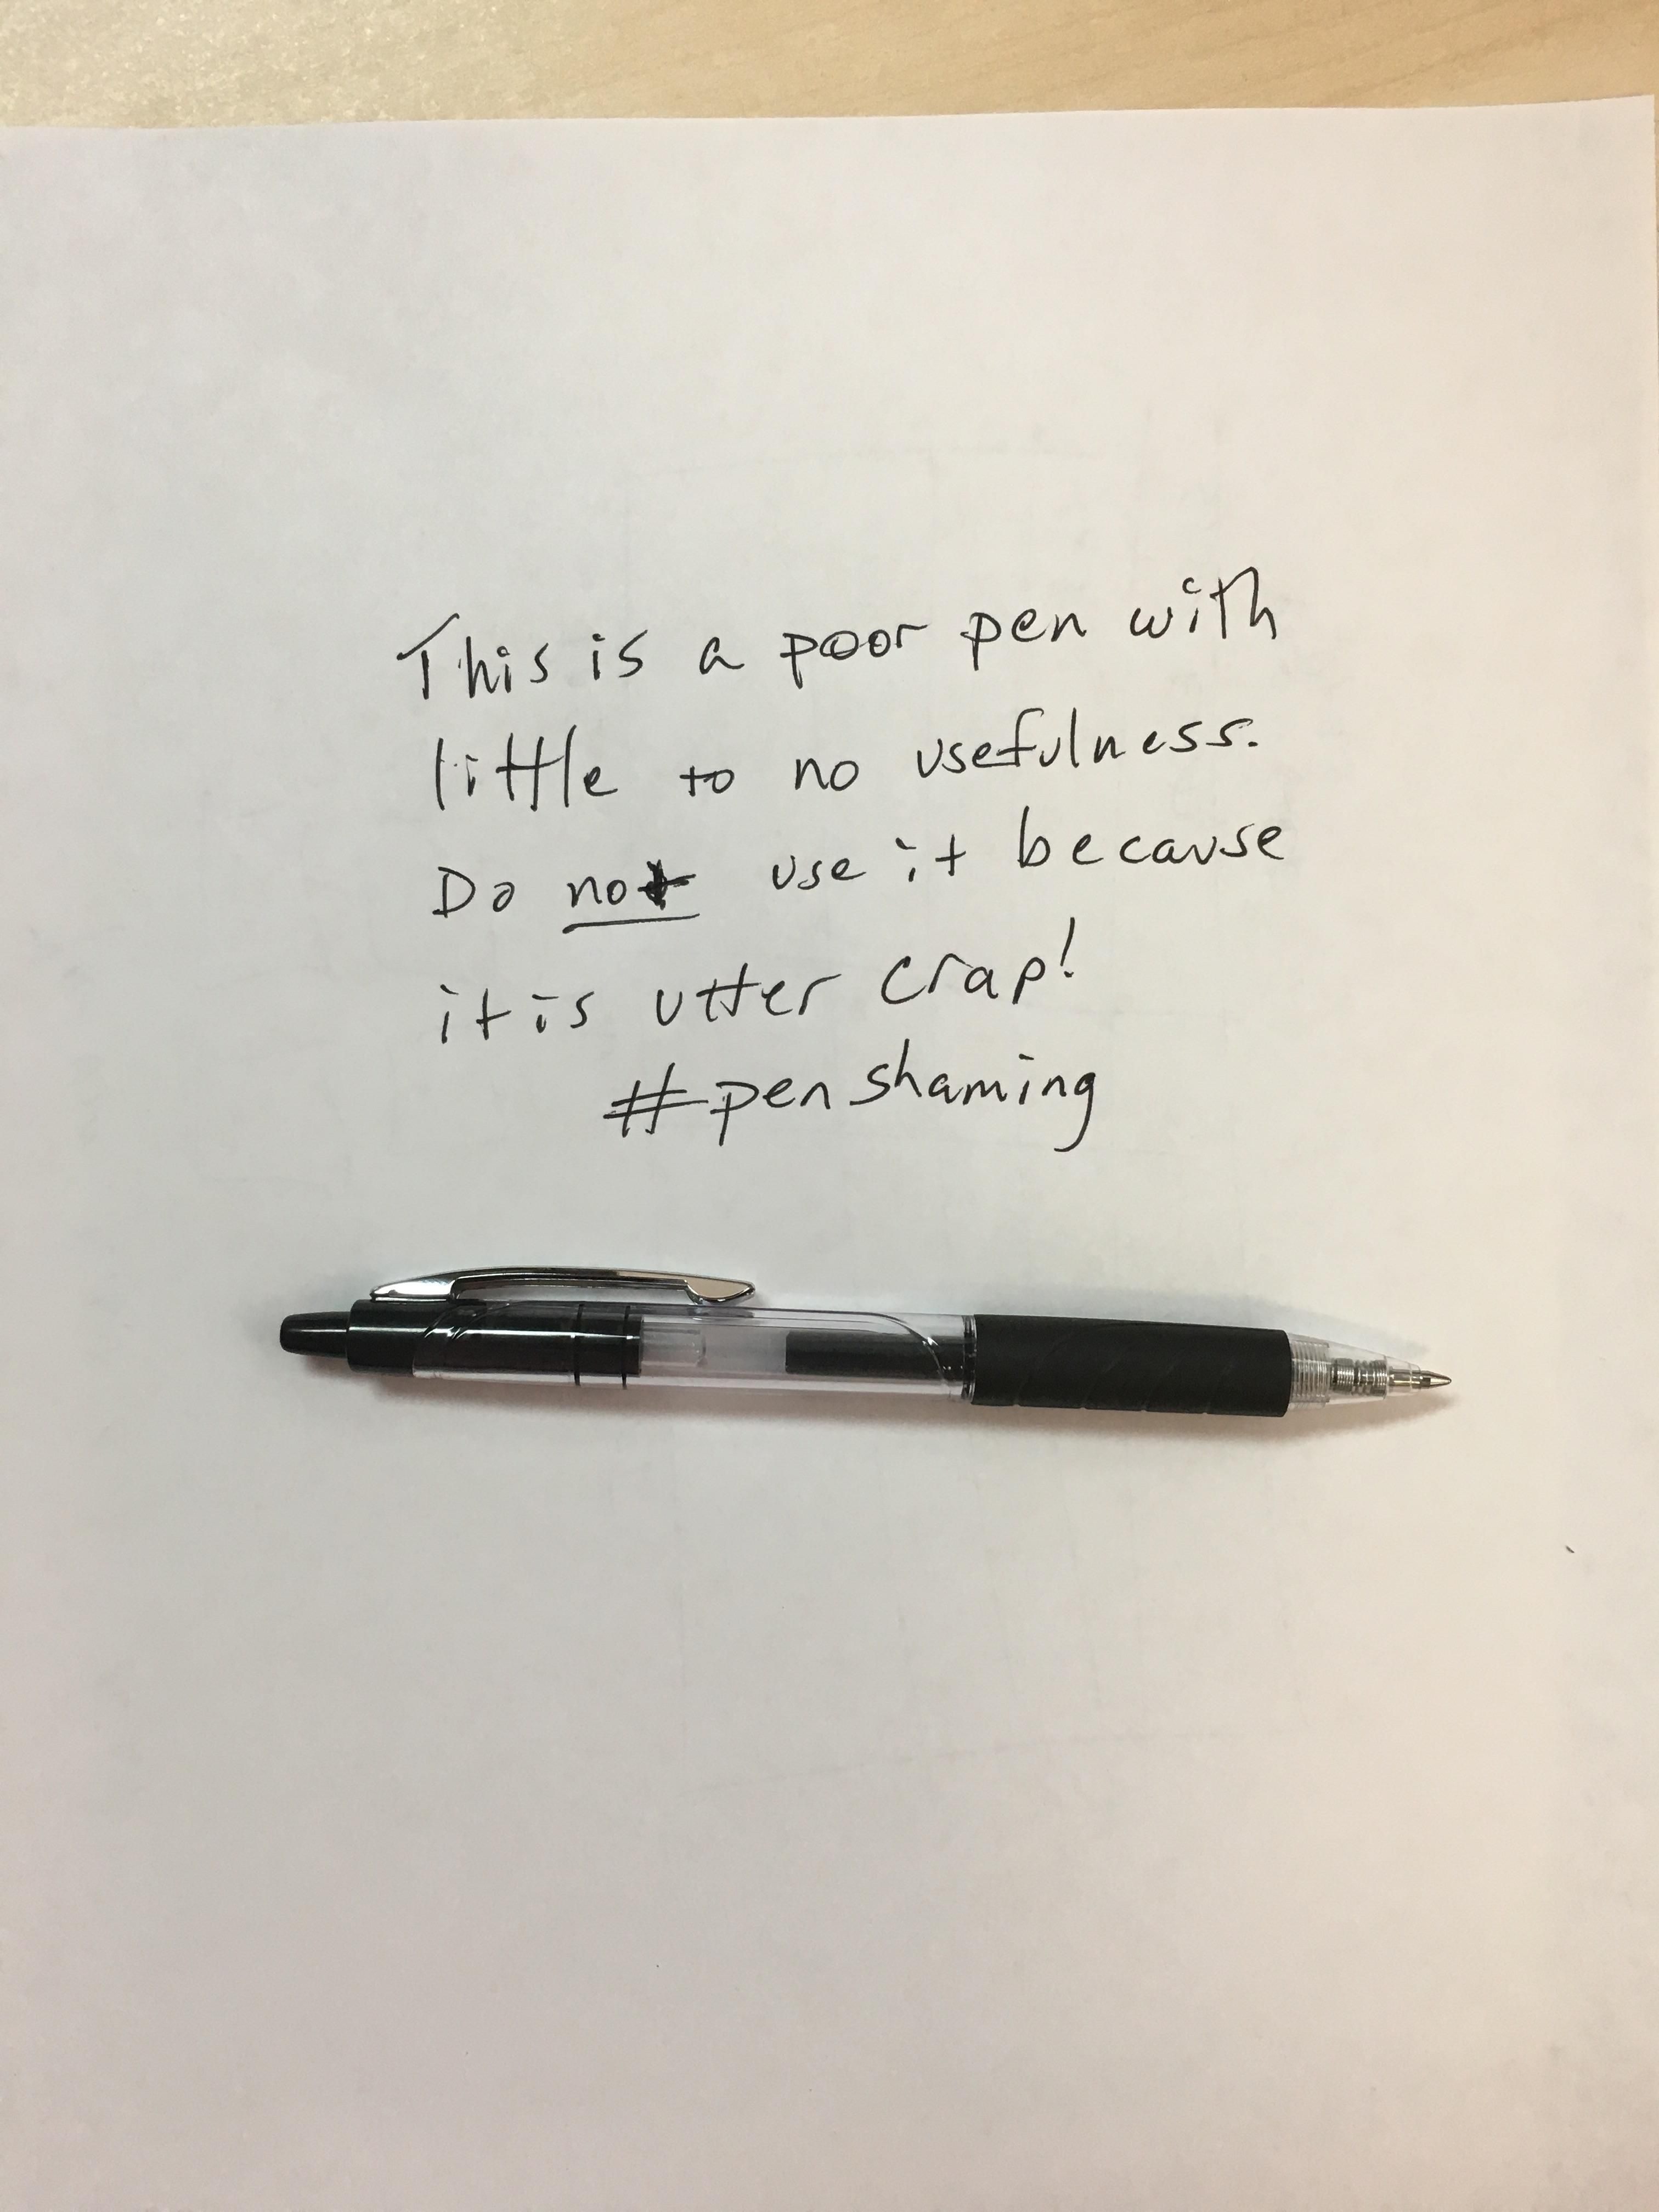 This is a poor pen with
little to no usefulness.
Do not use it because
it is utter crap!
#penshaming